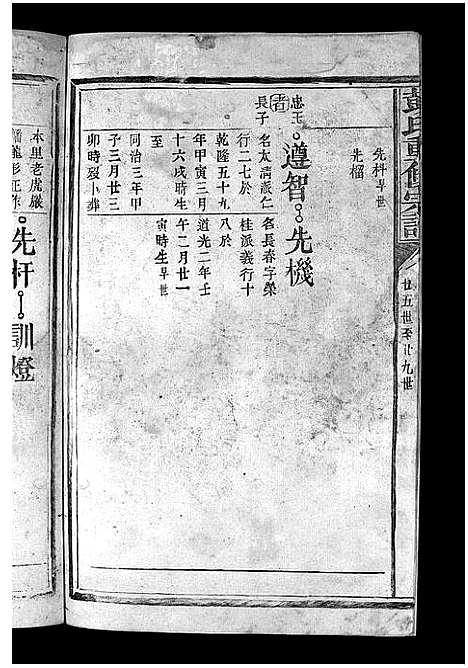 彭氏重修宗譜
廿五世至廿九世
先科早世
先榴
遵智 先機
忠玉
長子
名太清派仁
行二七於
乾隆五十九
年甲寅三月
十六戌時生
至
同治三年甲
子三月廿三
卯時歿卜葬
名長春字榮
桂派義行十
八於
道光二年壬
午二月廿一
寅時生早世
本里老虎巖
蟠龍形正作
先杆 訓燈